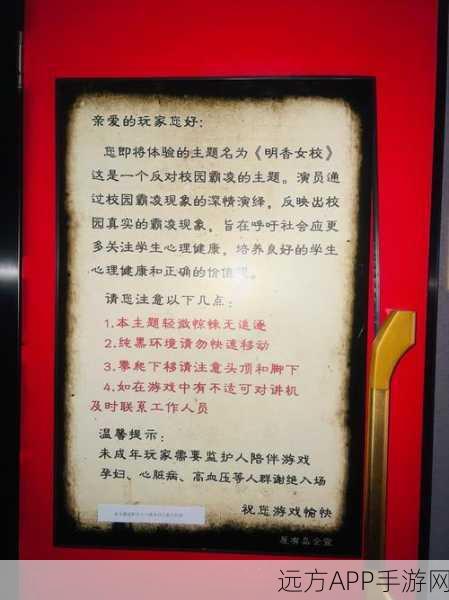 亲爱的玩家您好：
您即将体验的主题名为《明香女校》
这是一个反对校园霸凌的主题。演员通
过校园霸凌现象的深情演绎，反映出校
园真实的霸凌现象，旨在呼吁社会应更
多关注学生心理健康，培养良好的学生
心理健康和正确的价值观。
请您注意以下几点：
1.本主题轻微惊悚无追逐
2.纯黑环境请勿快速移动
3.攀爬下移请注意头顶和脚下
4.如在游戏中有不适可对讲机
及时联系工作人员
温馨提示：
未成年玩家需要监护人陪伴游戏
孕妇、心脏病、高血压等人群谢绝入场
祝您游戏愉快
远方APP手游网